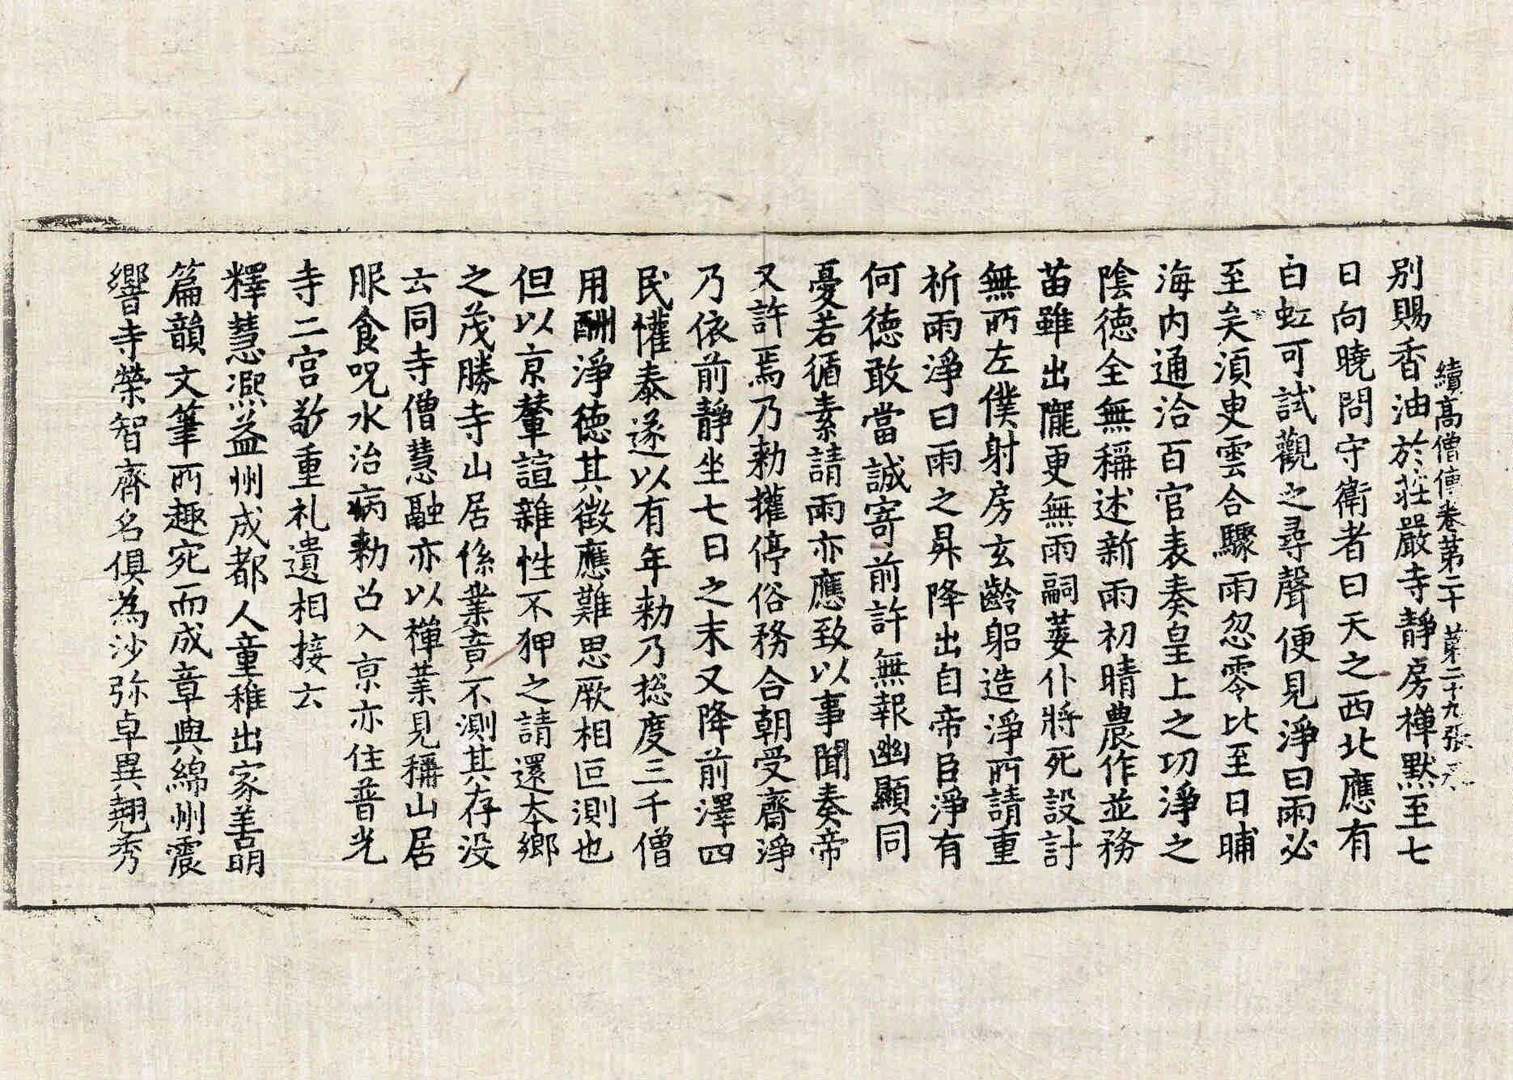 續高僧傳卷苐二十 苐二十九張
別賜香油於莊嚴寺静房禅默至七
日向曉問守衛者曰天之西北應有
白虹可試觀之尋聲便見淨曰雨必
至矣湏臾雲合驟雨忽零比至日晡
海内通洽百官表奏皇上之功淨之
陰德全無稱述新雨初晴農作並務
苗雖出隴更無雨嗣萎仆將死設計
無所左僕射房玄齡躬造淨所請重
祈雨淨曰雨之昇降出自帝臣淨有
何德敢當誠寄前許無報幽顯同
憂若循素請雨亦應致以事聞奏帝
又許焉乃勑權停俗務合朝受齋淨
乃依前静坐七日之末又降前澤四
民懽泰遂以有年勑乃揔度三千僧
用酬淨德其徵應難思厥相叵測也
但以京輦諠雜性不狎之請還本鄉
之茂勝寺山居係業竟不測其存没
云同寺僧慧融亦以禅業見稱山居
服食呪水治病勑召入京亦住普光
寺二宫敬重礼遺相接云
釋慧凞益州成都人童稚出家善明
篇韻文筆所趣宛而成章與綿州震
響寺榮智齊名俱為沙弥卓異翹秀